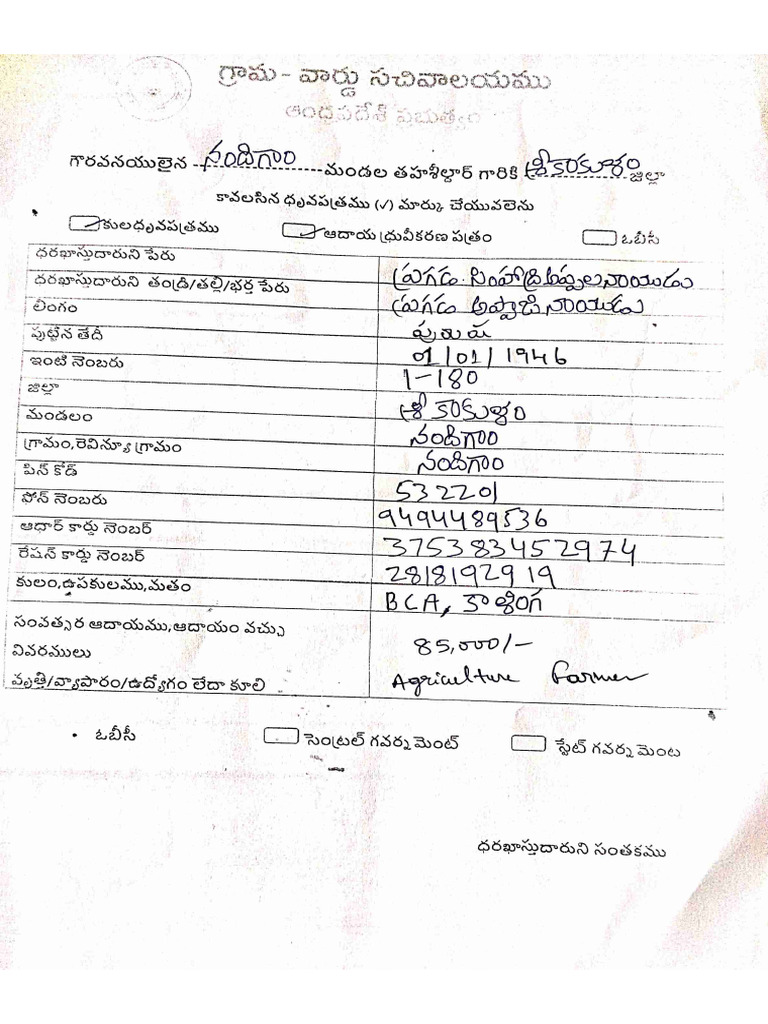 గ్రామ - వార్డు సచివాలయము
ఆంధ్రప్రదేశ్ ప్రభుత్వం
గౌరవనయులైన నందిగాం మండల తహశీల్దార్ గారికి శ్రీకాకుళం జిల్లా
కావలసిన ధృవపత్రము (✓) మార్కు చేయువలెను
కులధృవపత్రము ఆదాయ ధ్రువీకరణ పత్రం ఓబీసీ
ధరఖాస్తుదారుని పేరు ప్రగడ సింహాద్రి అప్పలనాయుడు
ధరఖాస్తుదారుని తండ్రి/తల్లి/భర్త పేరు ప్రగడ అప్పాజినాయుడు
లింగం పురుష
పుట్టిన తేదీ 01/01/1946
ఇంటి నెంబరు 1-180
జిల్లా శ్రీకాకుళం
మండలం నందిగాం
గ్రామం,రెవిన్యూ గ్రామం నందిగాం
పిన్ కోడ్ 532201
ఫోన్ నెంబరు 9494489536
ఆధార్ కార్డు నెంబర్ 375383452974
రేషన్ కార్డు నెంబర్ 2818192919
కులం,ఉపకులము,మతం BCA, కాళింగ
సంవత్సర ఆదాయము,ఆదాయం వచ్చు
వివరములు 85,000/-
వృత్తి/వ్యాపారం/ఉద్యోగం లేదా కూలి Agriculture Farmer
ఓబీసీ సెంట్రల్ గవర్న మెంట్ స్టేట్ గవర్న మెంట
ధరఖాస్తుదారుని సంతకము